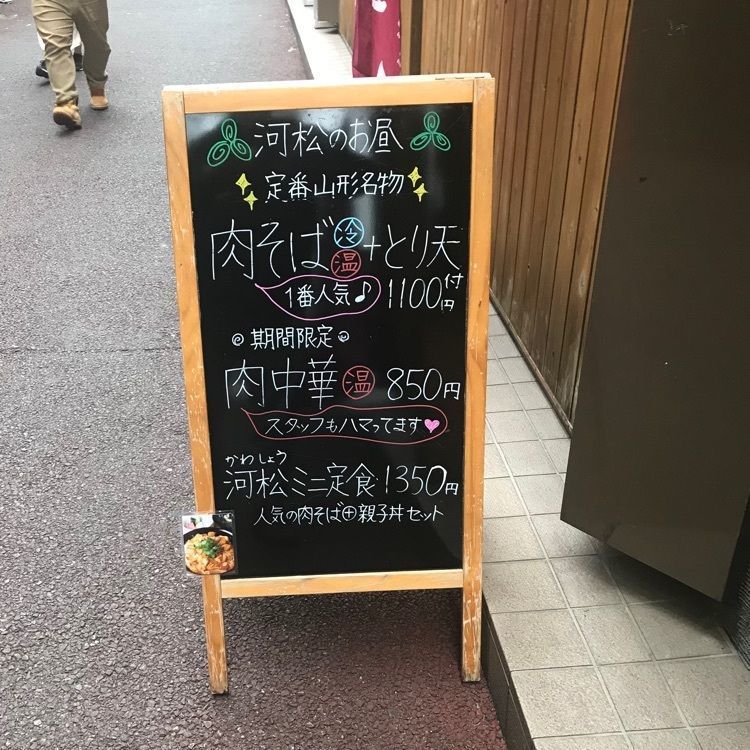 河松のお昼
定番山形名物
肉そば 冷 温 +とり天付
1番人気♪ 1100円
期間限定
肉中華 温 850円
スタッフもハマってます♥
かわしょう
河松ミニ定食 1350円
人気の肉そば⊕親子丼セット